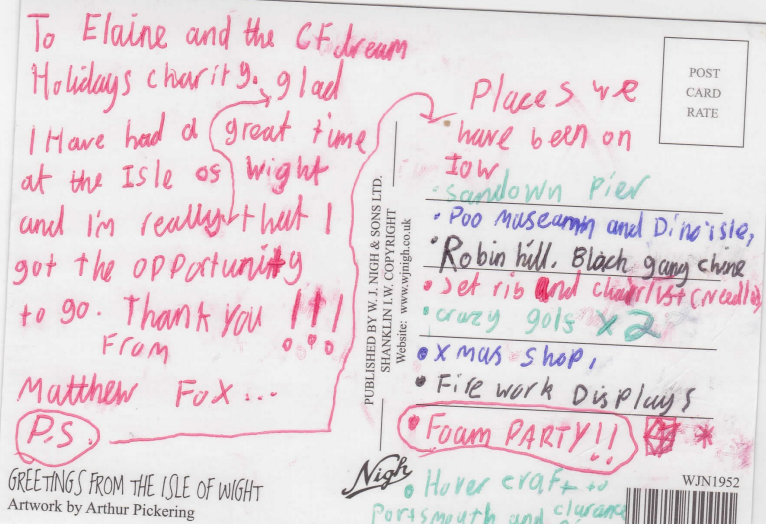 To Elaine and the CF dream
Holidays charity. glad
I Have had a great time
at the Isle os wight
and I'm really that I
got the opportunity
to go. Thank you !!!
From
Matthew Fox...
P.S.
GREETINGS FROM THE ISLE OF WIGHT
Artwork by Arthur Pickering
PUBLISHED BY W. J. NIGH & SONS LTD.
SHANKLIN I.W. COPYRIGHT
Website: www.wjnigh.co.uk
Nigh
POST
CARD
RATE
Places we
have been on
IOW
• Sandown Pier
• Poo museamn and Dino isle,
• Robin hill. Black gang chine
• Jet rib and chairlist (needles)
• crazy gols x2
• Xmas Shop,
• Fire work Displays
• Foam PARTY!!
• Hover craft to
Portsmouth and clarance
WJN1952